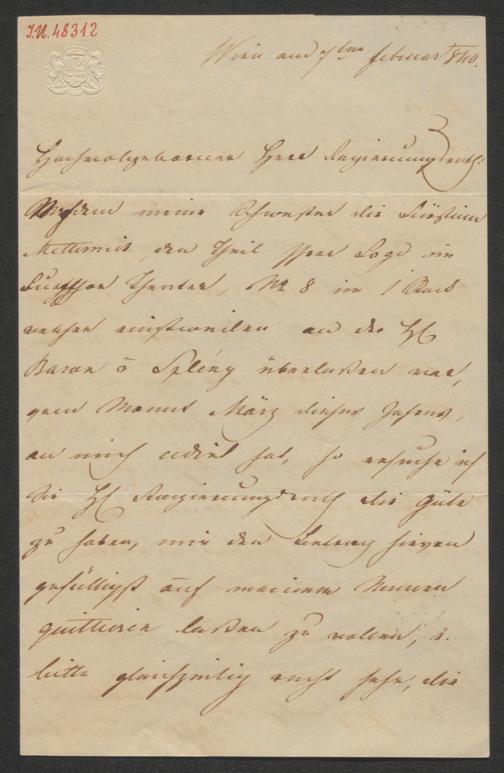 I.N. 48312
Wien am 7ten Februar 840.
Hochwolgeborner Herr Regierungsrath!
Nachdem meine Schwester die Fürstinn
Metternich, den Theil Ihrer Loge im
Theater, No 8 im 1 Stock
welcher einstweilen an den H
Baron v Splény überlaßen war,
Monat März dieses Jahres,
an mich cedirt hat, so ersuche ich
Sie H Regierungsrath die Güte
zu haben, mir den Betrag hievon
gefälligst auf meinem Namen
quittieren laßen zu wollen, u.
bitte gleichzeitig recht sehr, die